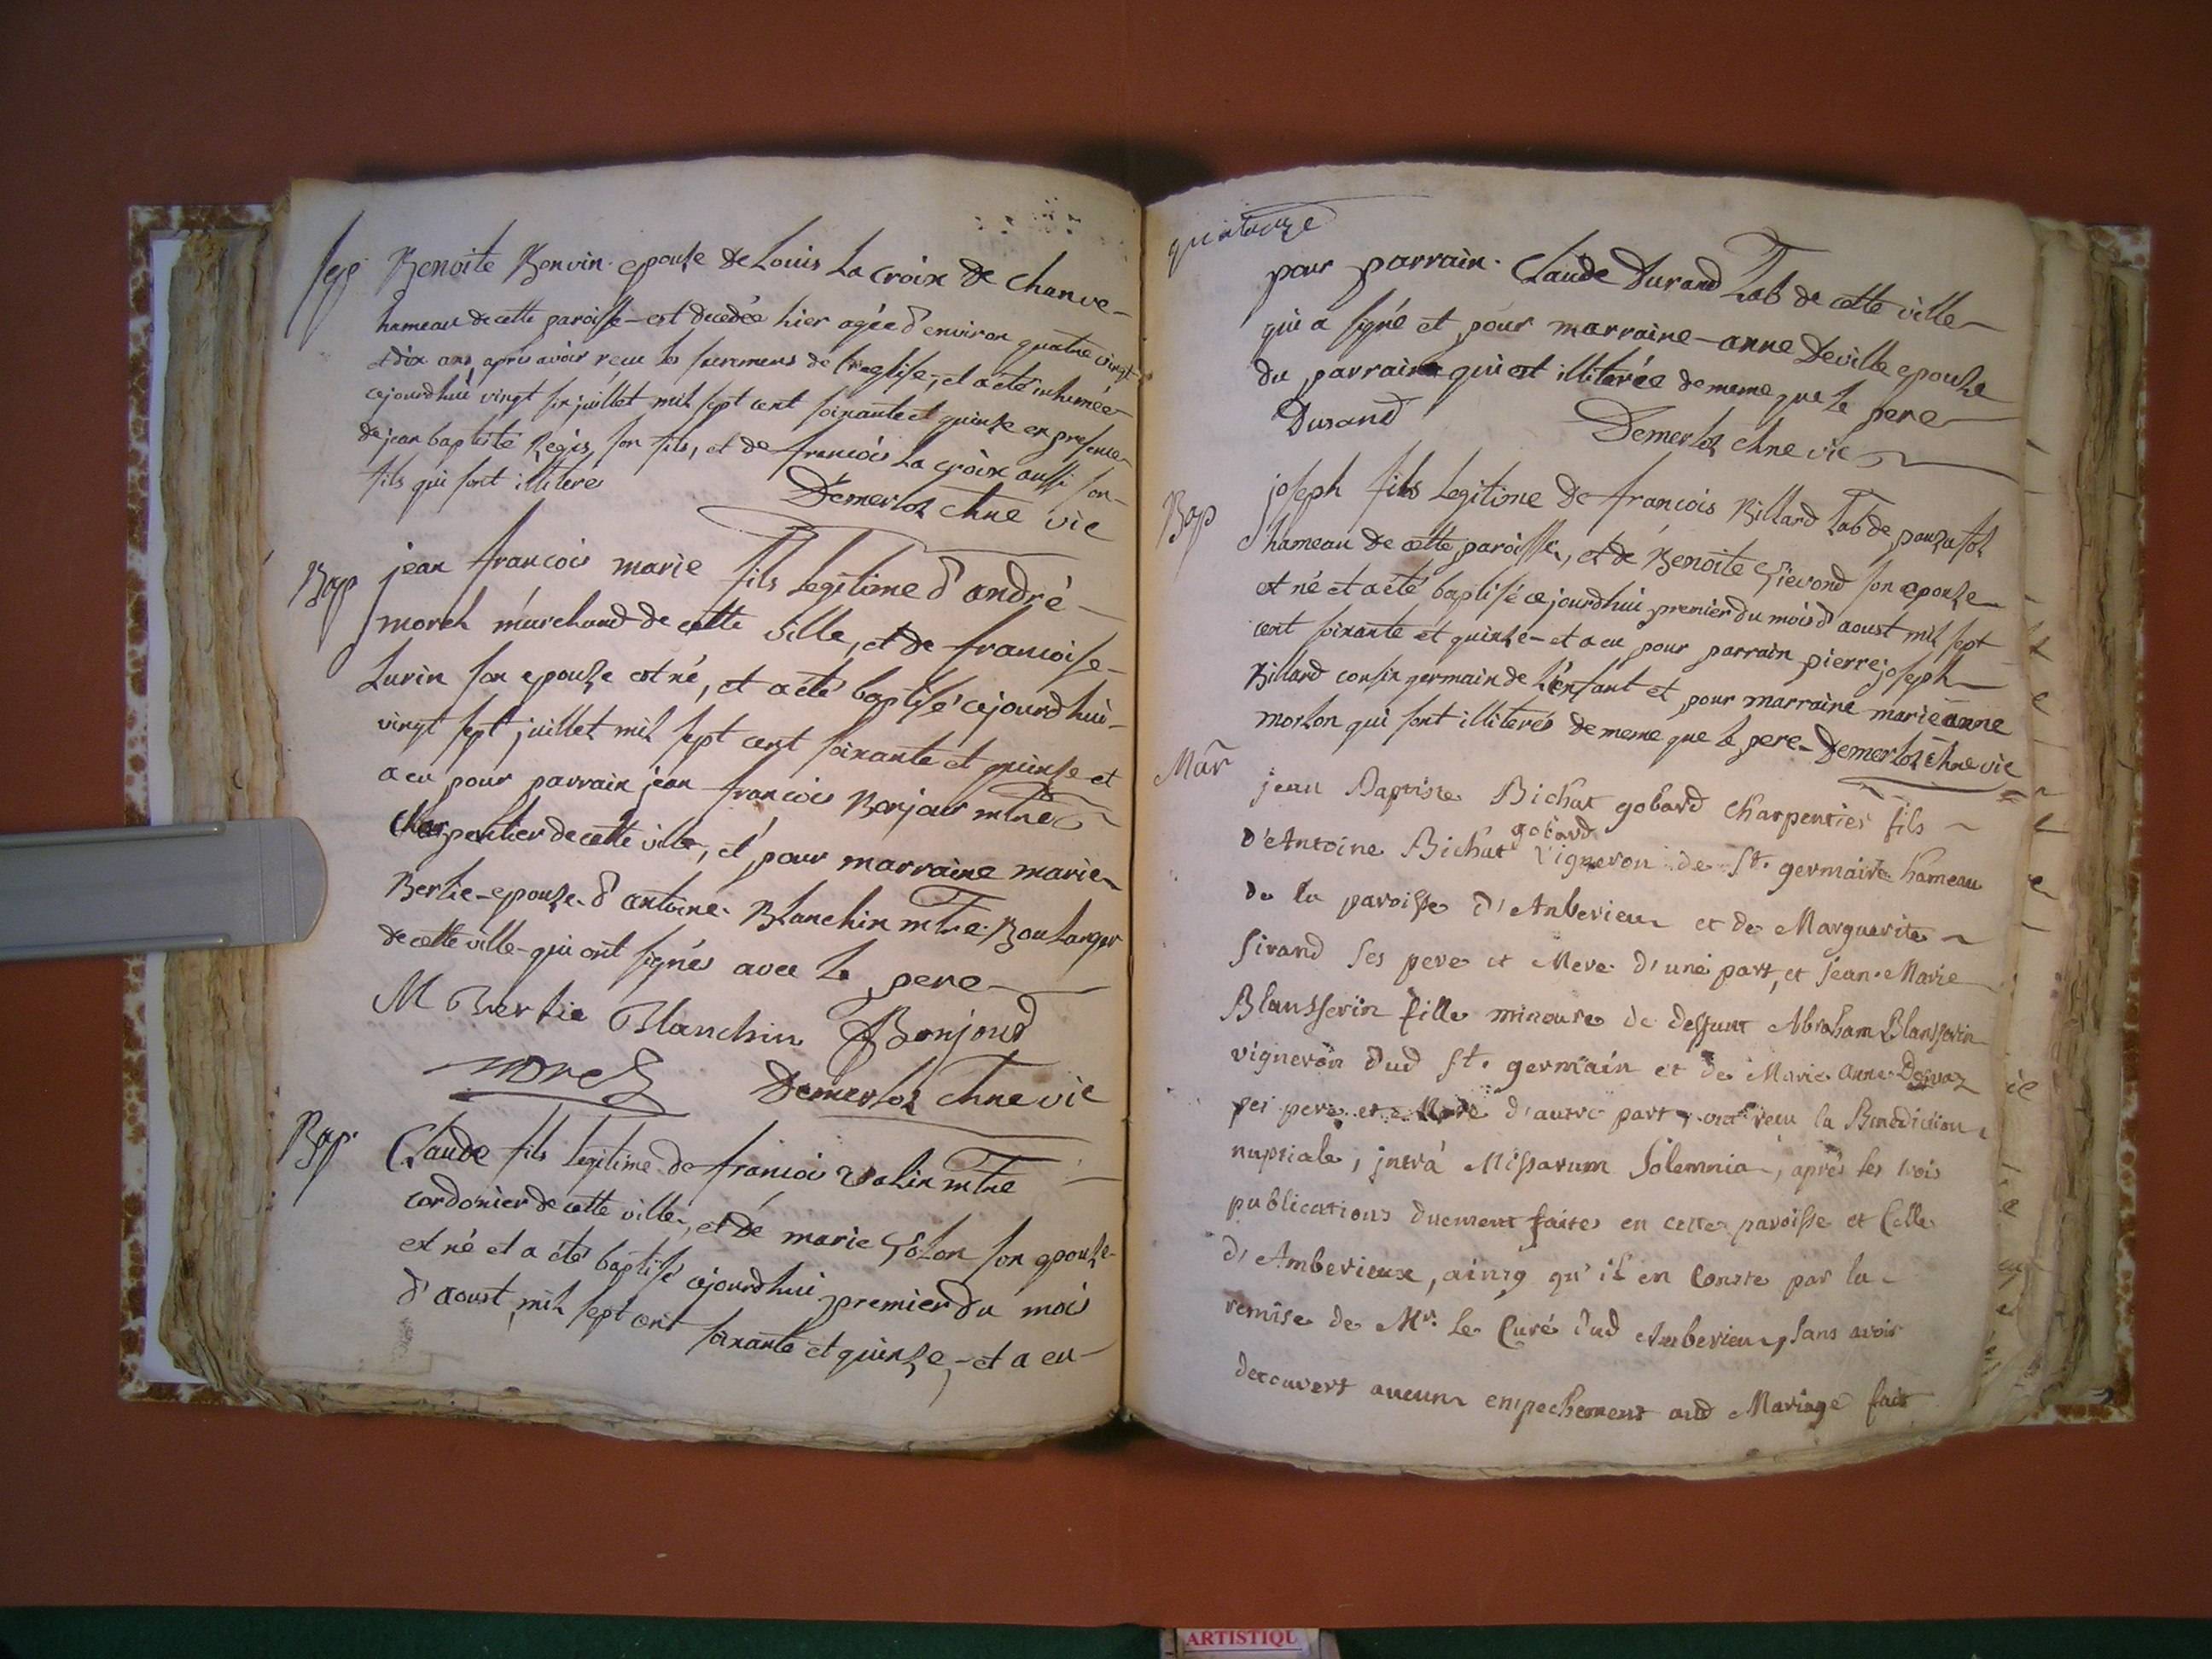 Sep Benoite Bonvin epouse de Louis La croix de Chanve
hameau de cette paroisse est decedée hier agée d'environ quatre vingt
et dix ans, apres avoir recu les sacremens de l'eglise, et a été inhumée
cejourdhui vingt six juillet mil sept cent soixante et quinse en presence
de jean baptiste Regis son fils, et de francois La croix aussi son
fils qui sont illiteres
Demerloz chne vic
Bap jean francois marie fils legitime d'andré
morel marchand de cette ville, et de francoise
Lurin son epouse est né, et a été baptisé cejourdhui
vingt sept juillet mil sept cent soixante et quinse et
a eu pour parrain jean francois Bonjour mtre
charpentier de cette ville, et pour marraine marie
Bertie epouse d'antoine Blanchin mtre Boulanger
de cette ville qui ont signés avec le pere
M Bertie Blanchin Bonjour
morel Demerloz chne vic
Bap Claude fils legitime de francois valin mtre
cordonier de cette ville, et de marie Golon son epouse
est né et a été baptisé cejourdhui premier du mois
d'aoust mil sept cent soixante et quinse, et a eu
quatorze
pour parrain Claude Durand Lab de cette ville
qui a signé et pour marraine anne Deville epouse
du parrain qui est illiterée de meme que le pere
Durand Demerloz chne vic
Bap joseph fils legitime de francois Billard Lab de
hameau de cette paroisse, et de Benoite son epouse
est né et a été baptisé cejourdhui premier du mois d'aoust mil sept
cent soixante et quinse et a eu pour parrain pierre joseph
Billard cousin germain de l'enfant et pour marraine marie anne
morlon qui sont illiterés de meme que le pere Demerloz chne vic
Mar jean Baptiste Bichat gobard Charpentier fils
gobard
d'Antoine Bichat vigneron de St. germain hameau
de la paroisse d'Anberieu et de Marguerite
Sirand ses pere et Mere d'une part, et Jeane Marie
Blansserin fille mineure de deffunt Abraham Blansserin
vigneron dud St. germain et de Marie Anne
ses pere et Mere d'autre part, ont recu la Benediction
nuptiale, intrà Missarum Solemnia, après les trois
publications duement faites en cette paroisse et Celle
d'Amberieux, ainsy qu'il en Conste par la
remise de Mr. le Curé dud Amberieu, sans avoir
decouvert aucun empechement aud Mariage fait
ARTISTIQU